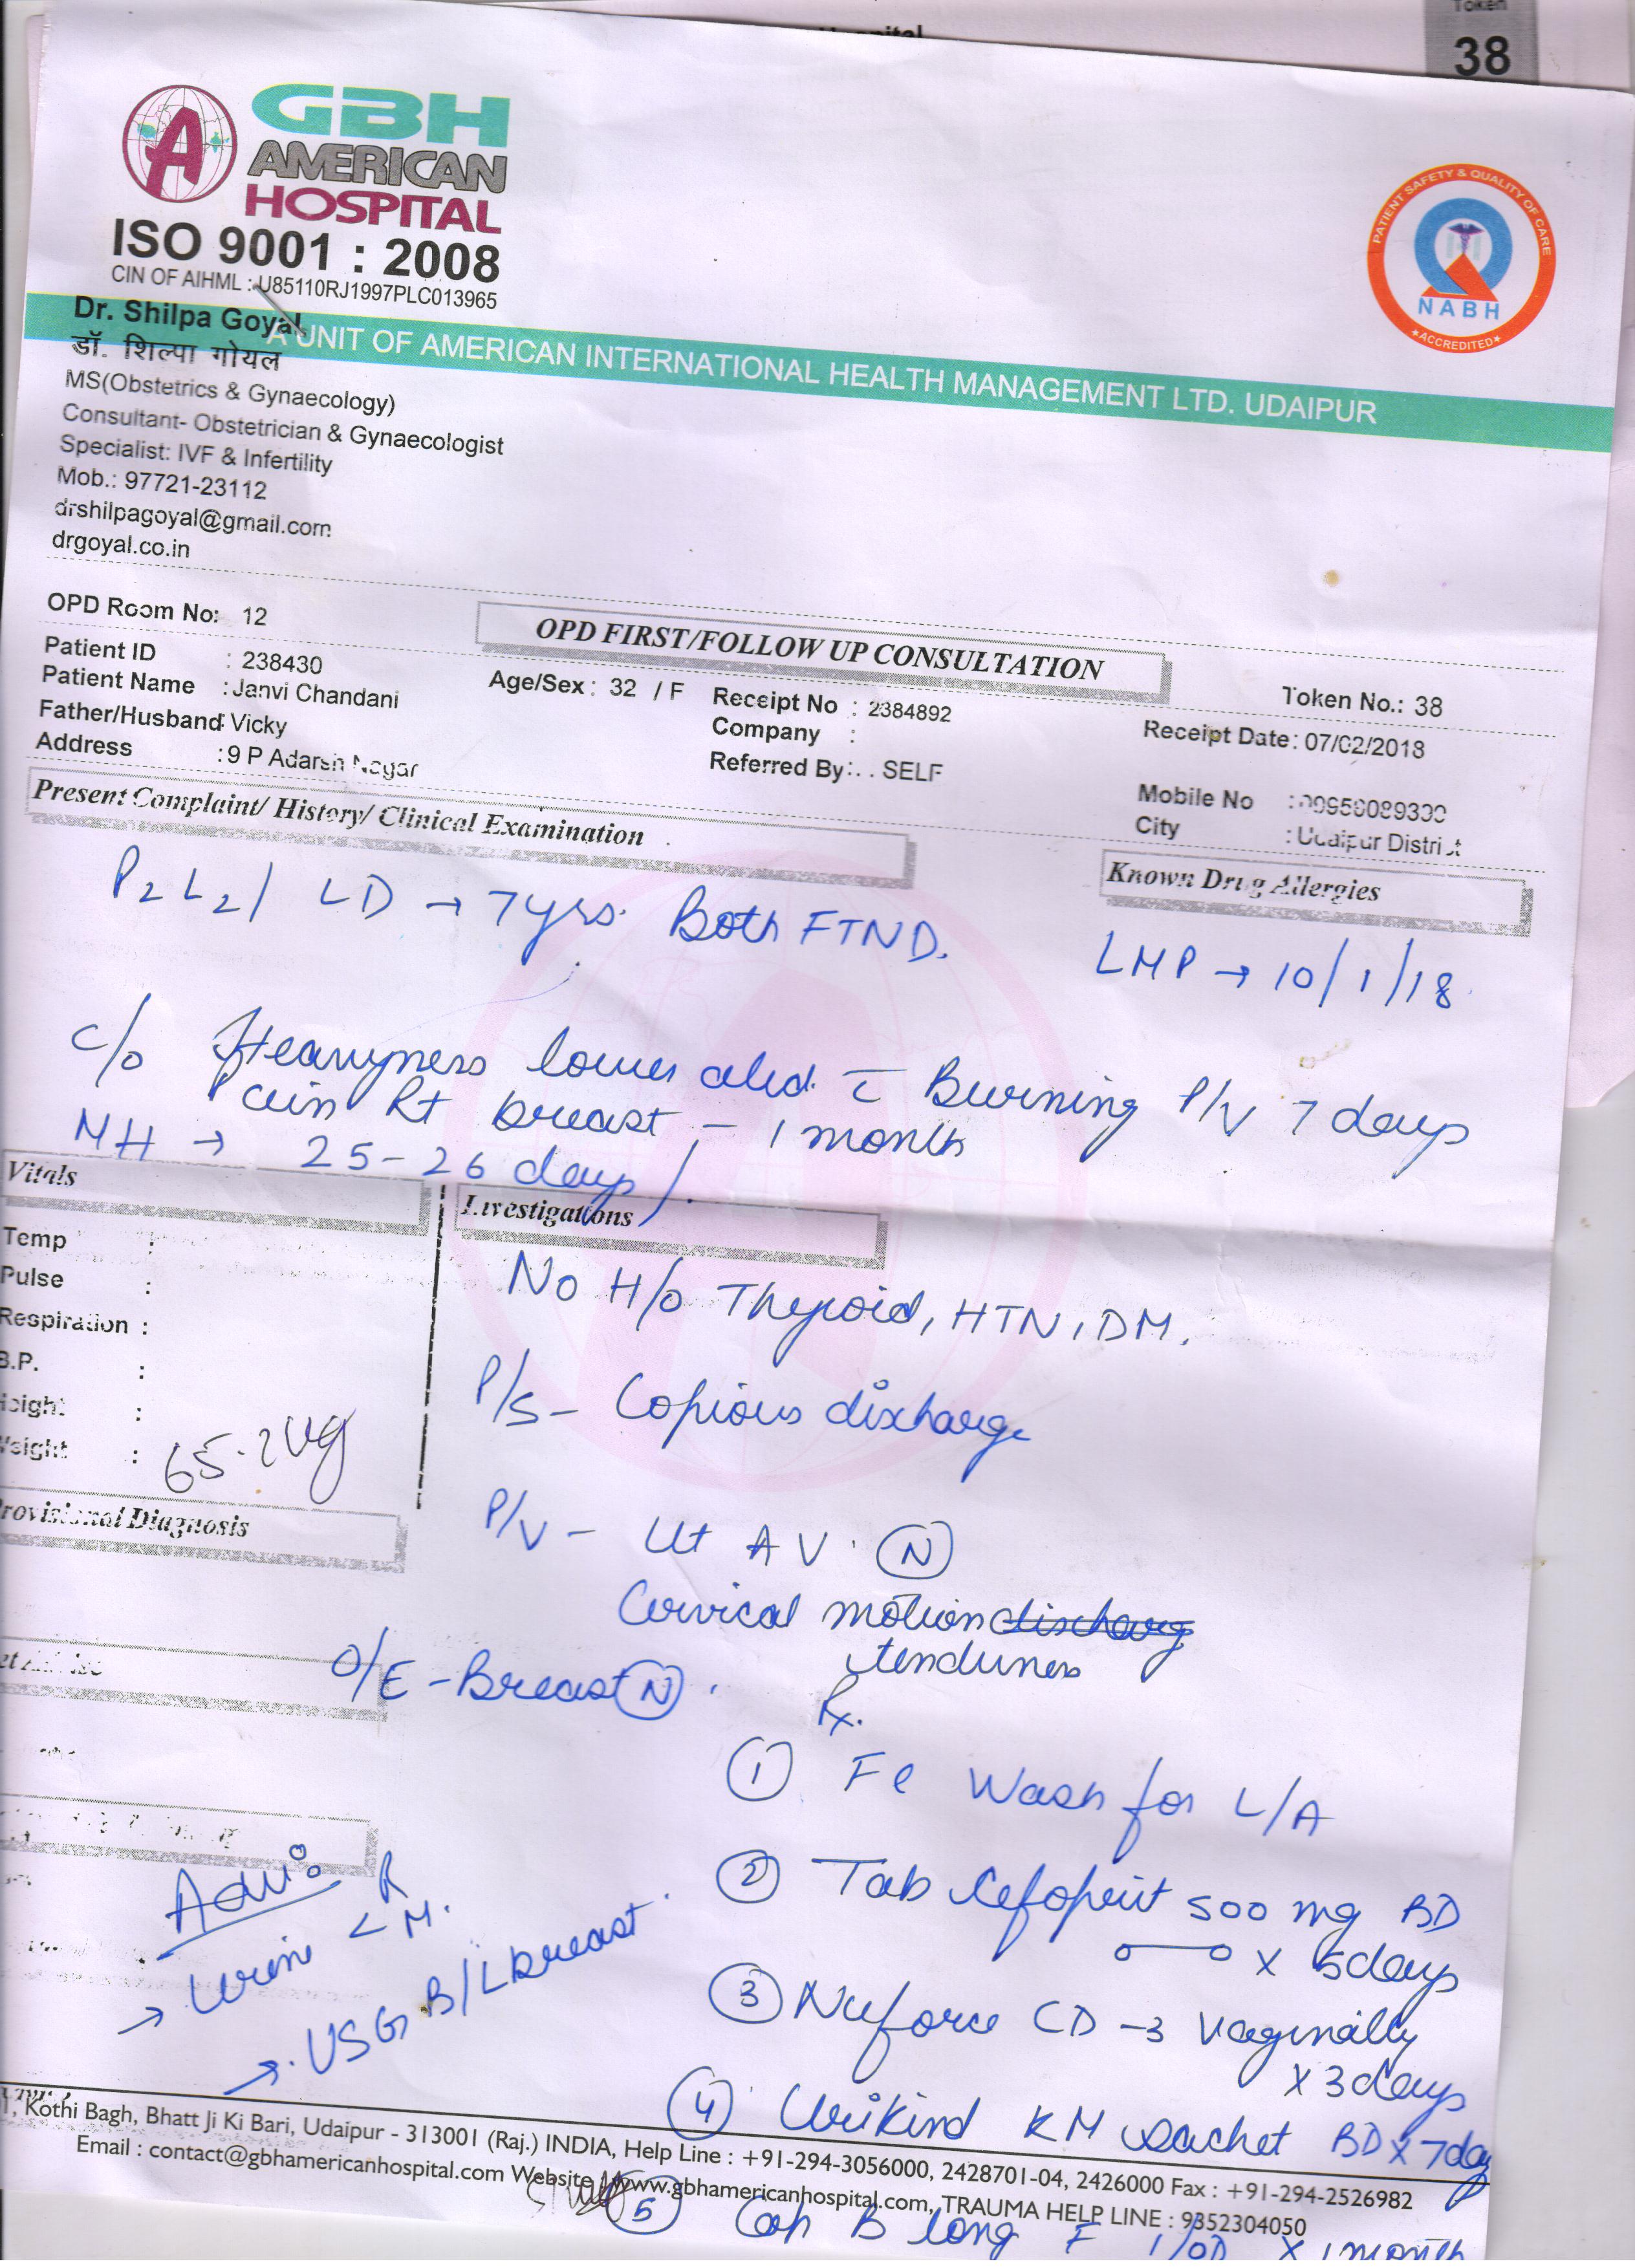 Token
38
GBH
AMERICAN
HOSPITAL
ISO 9001 : 2008
CIN OF AIHML : U85110RJ1997PLC013965
PATIENT SAFETY & QUALITY OF CARE
NABH
ACCREDITED
A UNIT OF AMERICAN INTERNATIONAL HEALTH MANAGEMENT LTD. UDAIPUR
Dr. Shilpa Goyal
डॉ. शिल्पा गोयल
MS(Obstetrics & Gynaecology)
Consultant- Obstetrician & Gynaecologist
Specialist: IVF & Infertility
Mob.: 97721-23112
drshilpagoyal@gmail.com
drgoyal.co.in
OPD Room No: 12
OPD FIRST/FOLLOW UP CONSULTATION
Token No.: 38
Patient ID : 238430
Patient Name : Janvi Chandani Age/Sex : 32 / F Receipt No : 2384892 Receipt Date: 07/02/2018
Father/Husband : Vicky Company :
Address : 9 P Adarsh Nagar Referred By: . . SELF Mobile No :
City : Udaipur District
Present Complaint/ History/ Clinical Examination
Known Drug Allergies
P2L2 / LD → 7yrs. Both FTND.
LMP → 10/1/18
c/o Heavyness lower abd. c̄ Burning P/V 7 days
Pain Rt breast – 1 month
MH → 25-26 days /.
Vitals
Investigations
Temp :
Pulse :
Respiration :
B.P. :
Height :
Weight : 65.2kg
No H/o Thyroid, HTN, DM.
P/S – Copious discharge
Provisional Diagnosis
P/V – Ut AV. N
Cervical motion discharg
tenderness
O/E – Breast N.
Rx.
1 Fe Wash for L/A
2 Tab Cefoprit 500 mg BD
x 5days
3 Nuforce CD-3 vaginally
x 3days
4 Urikind KM sachet BD x 7day
5 Cap B long F 1/OD x 1 month
Adv:
→ Urine < R
M.
→ USG B/L breast.
1, Kothi Bagh, Bhatt Ji Ki Bari, Udaipur - 313001 (Raj.) INDIA, Help Line : +91-294-3056000, 2428701-04, 2426000 Fax : +91-294-2526982
Email : contact@gbhamericanhospital.com Website : www.gbhamericanhospital.com, TRAUMA HELP LINE : 9352304050